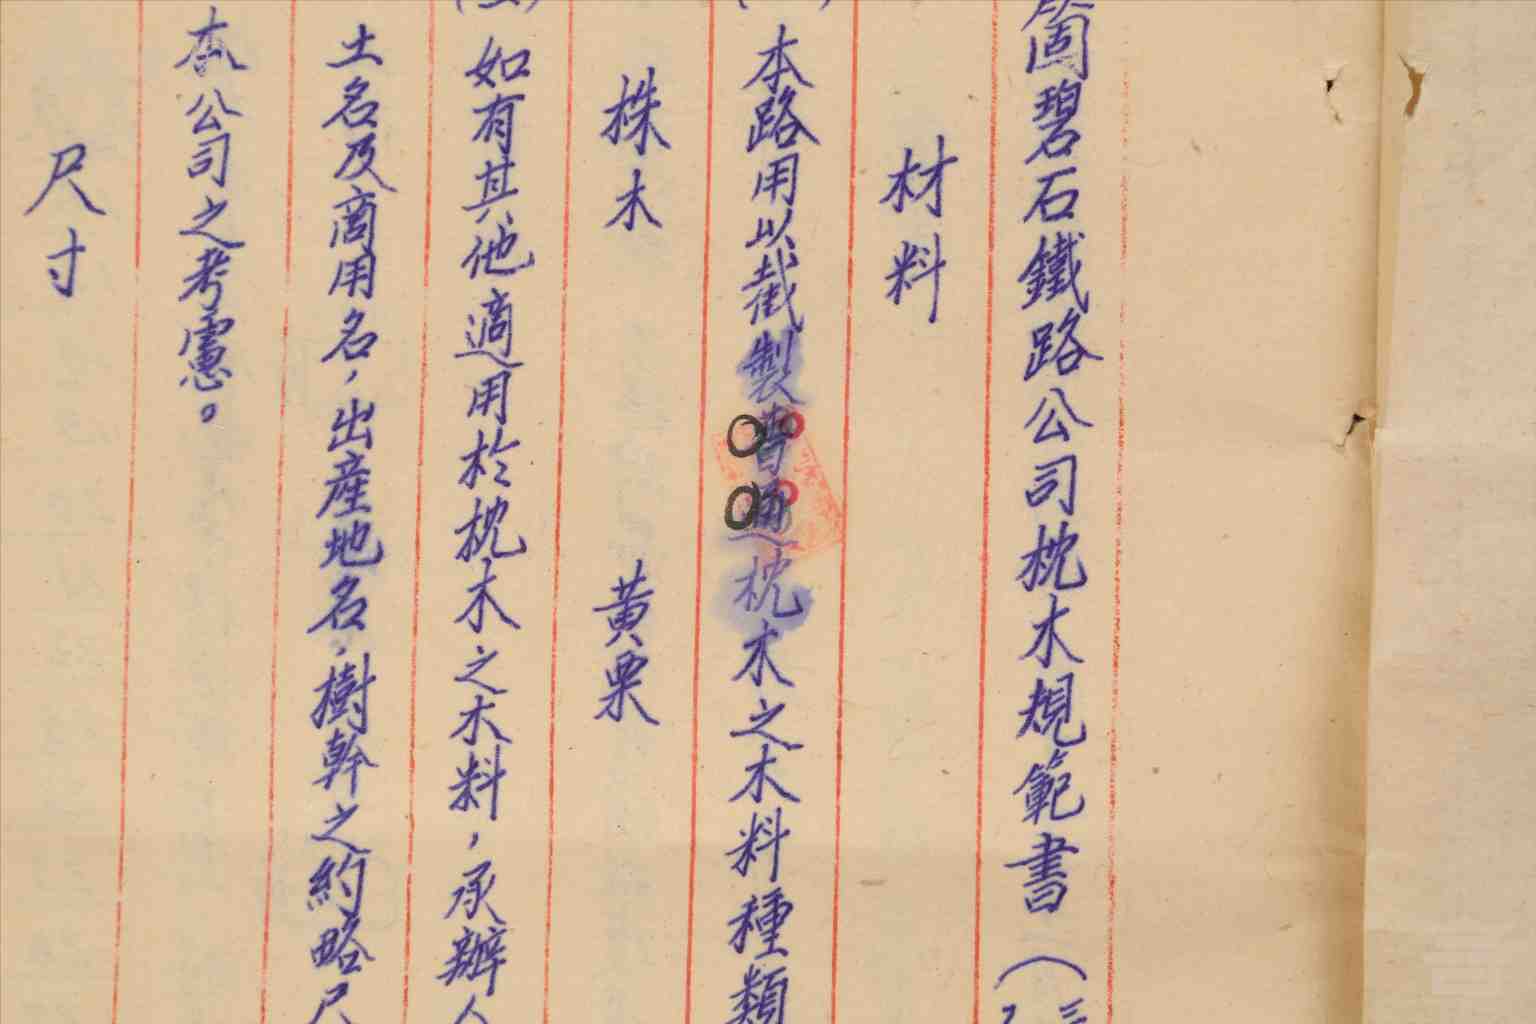 箇碧石鐵路公司枕木規範書（三
材料
本路用以截製普通枕木之木料種類
株木 黃栗
如有其他適用於枕木之木料，承辦人
土名及商用名，出產地名，樹幹之約略尺
本公司之考慮。
尺寸